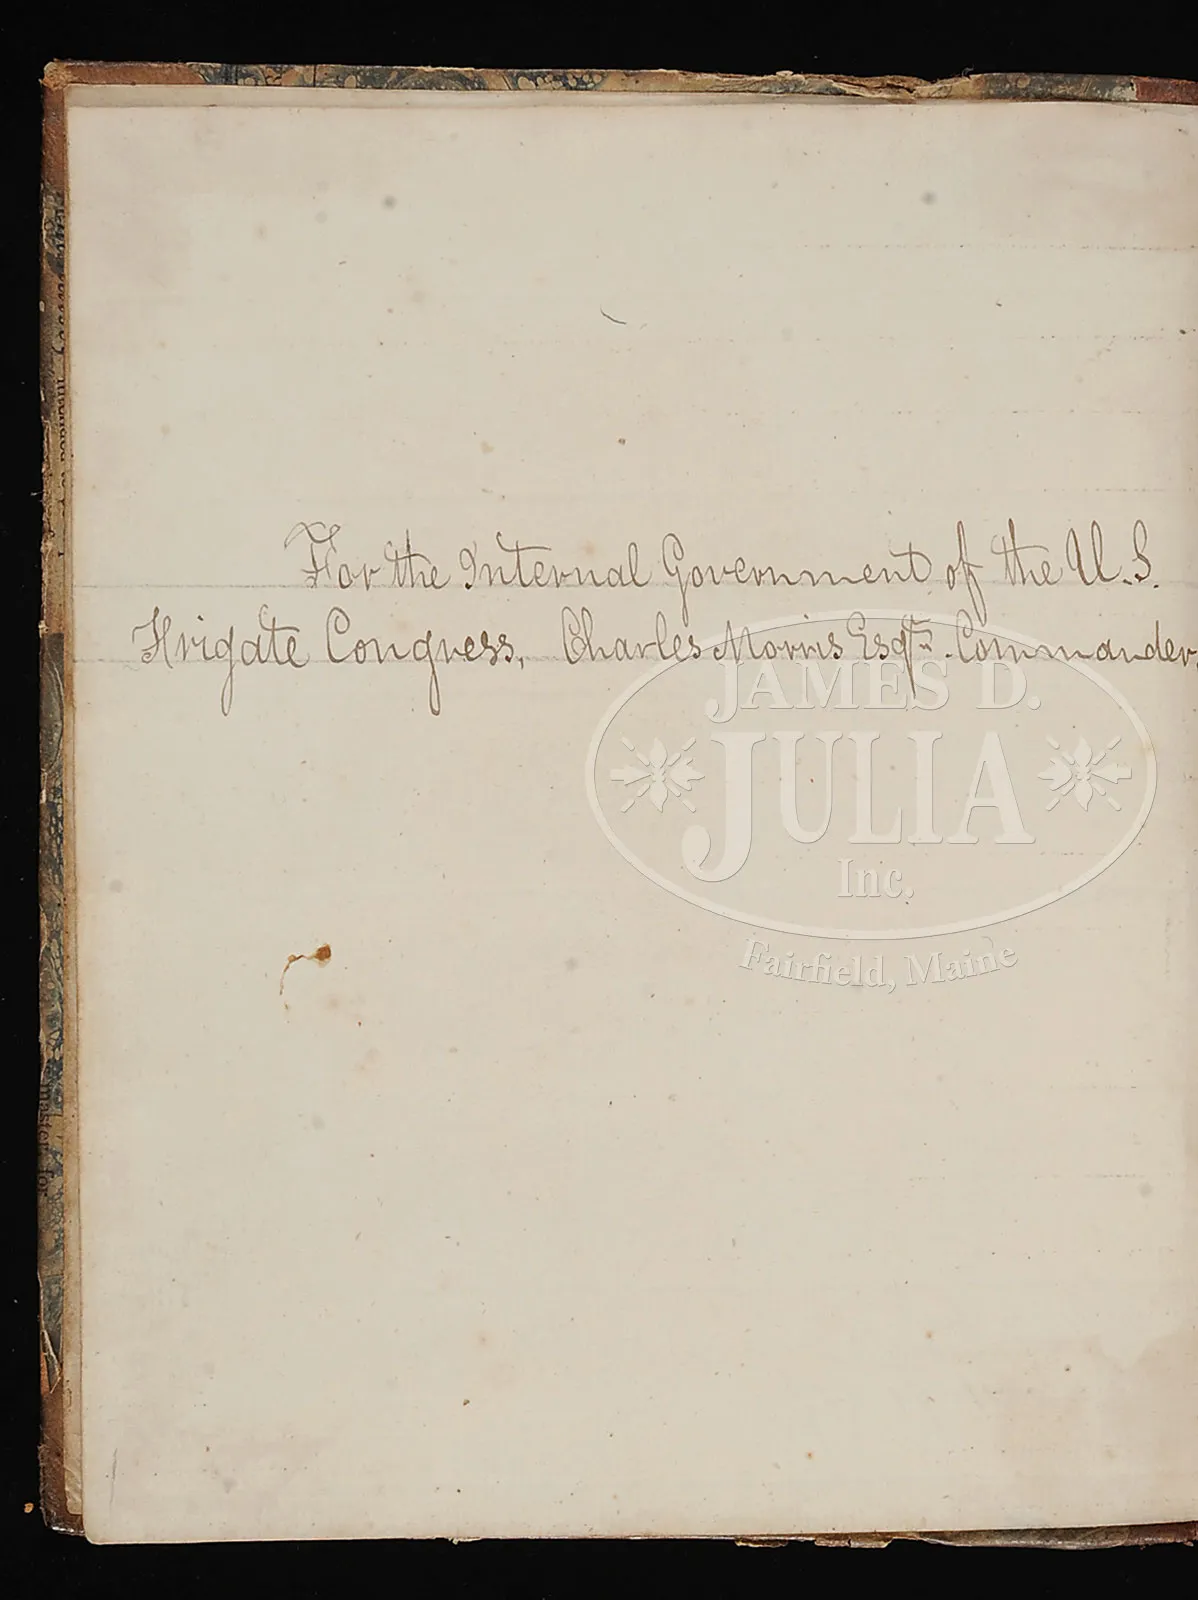 For the Internal Government of the U.S.
Frigate Congress, Charles Morris Esqr. Commander.
JAMES D.
JULIA
Inc.
Fairfield, Maine
master for